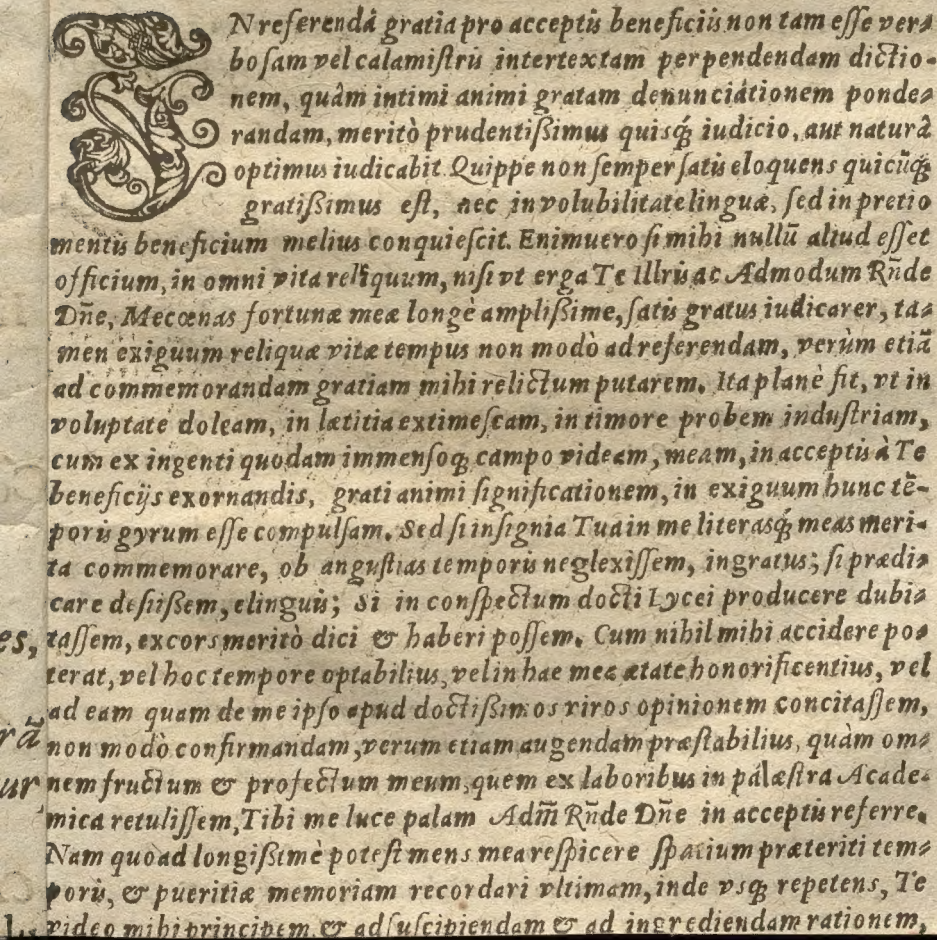 IN referendâ gratia pro acceptis beneficiis non tam esse ver-
bosam vel calamistris intertextam perpendendam dictio-
nem, quàm intimi animi gratam denunciationem ponde-
randam, meritò prudentißimus quisq́; iudicio, aut naturâ
optimus iudicabit. Quippe non semper satis eloquens quicūq́;
gratißimus est, nec in volubilitate linguæ, sed in pretio
mentis beneficium melius conquiescit. Enimuero si mihi nullū aliud esset
officium, in omni vita reliquum, nisi vt erga Te Illris ac Admodum Rn̄de
Dn̄e, Mecœnas fortunæ meæ longè amplißime, satis gratus iudicarer, ta-
men exiguum reliquæ vitæ tempus non modò ad referendam, verùm etiā
ad commemorandam gratiam mihi relictum putarem. Ita planè fit, vt in
voluptate doleam, in lætitia extimescam, in timore probem industriam,
cum ex ingenti quodam immensoq; campo videam, meam, in acceptis à Te
beneficijs exornandis, grati animi significationem, in exiguum hunc tē-
poris gyrum esse compulsam. Sed si insignia Tua in me literasq́; meas meri-
ta commemorare, ob angustias temporis neglexissem, ingratus; si prædi-
care desiißem, elinguis; Si in conspectum docti Lycei producere dubi-
es, tassem, excors meritò dici & haberi possem. Cum nihil mihi accidere po-
terat, vel hoc tempore optabilius, vel in hac mea ætate honorificentius, vel
ad eam quam de me ipso apud doctißimos viros opinionem concitassem,
rā non modò confirmandam, verum etiam augendam præstabilius, quàm om-
ur nem fructum & profectum meum, quem ex laboribus in palæstra Acade-
mica retulissem, Tibi me luce palam Adm̄ Rn̄de Dn̄e in acceptis referre.
Nam quoad longißimè potest mens mea respicere spatium præteriti tem-
poris, & pueritiæ memoriam recordari vltimam, inde vsq; repetens, Te
video mihi principem & ad suscipiendam & ad ingrediendam rationem,